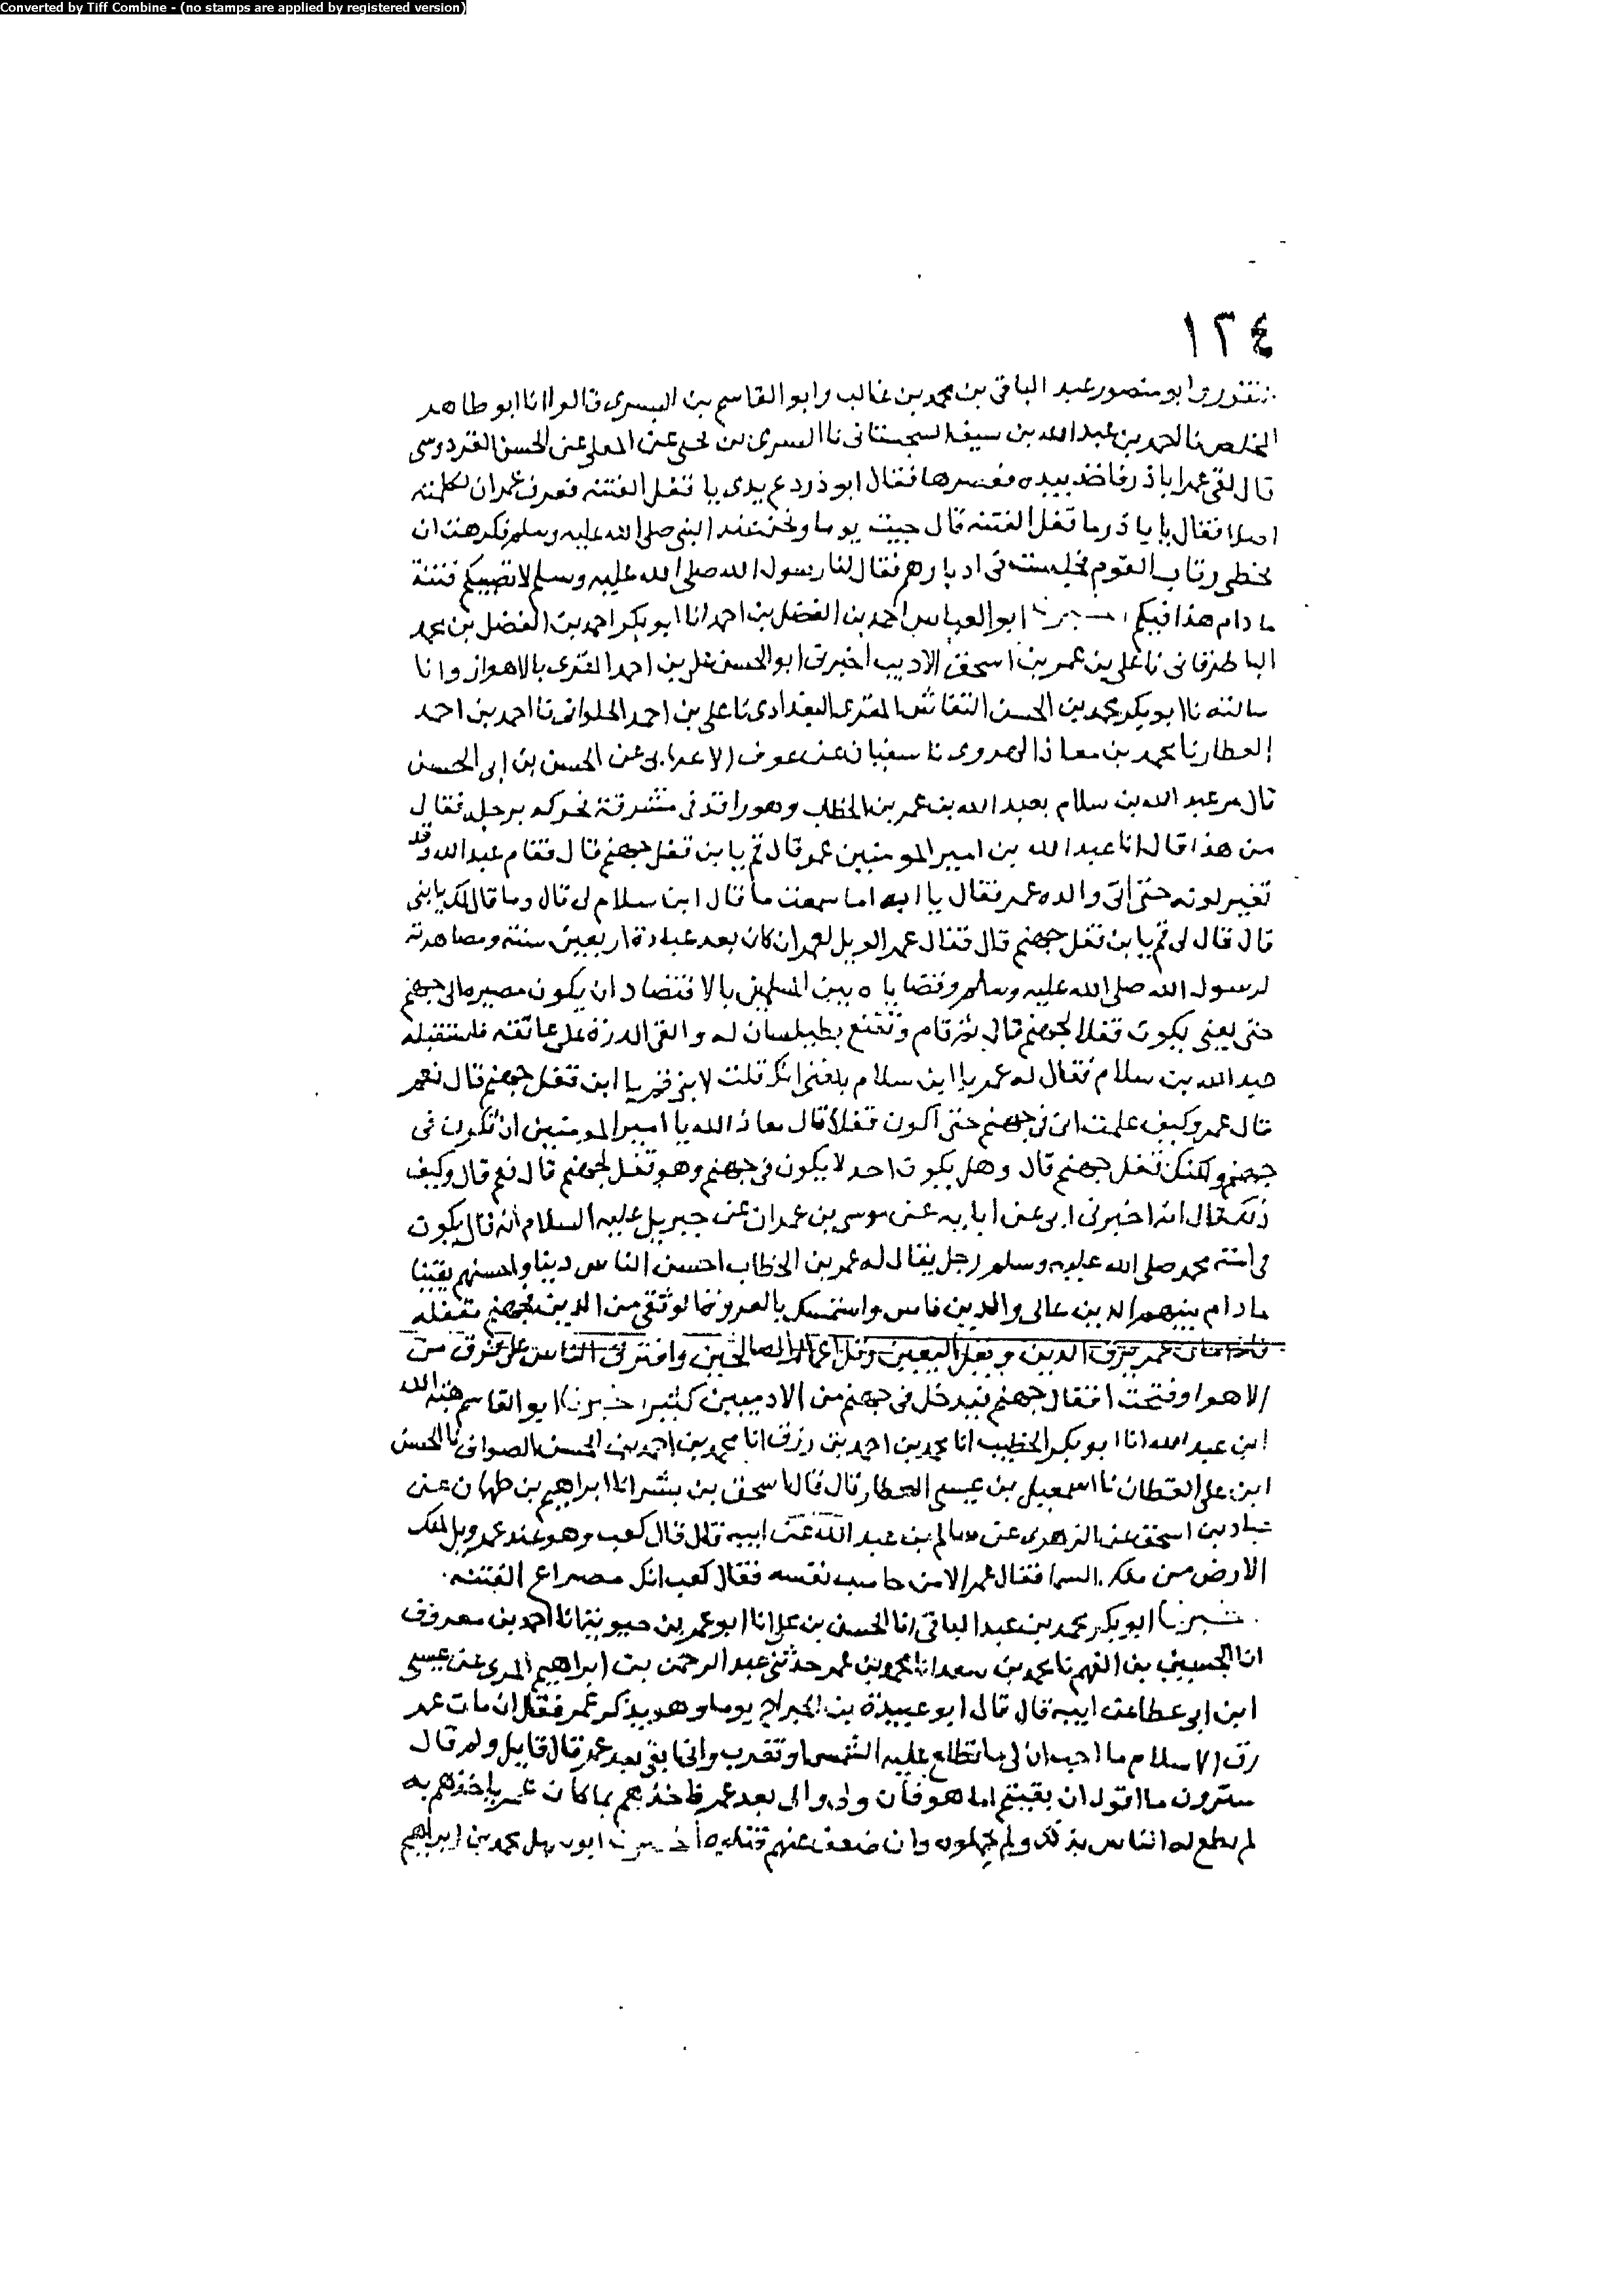 Converted by Tiff Combine - (no stamps are applied by registered version)
١٣٤
ابو منصور عبد الباقى بن محمد بن غالب وابو القاسم بن البسرى قالوا انا ابو طاهر
المخلص نا احمد بن عبد الله بن سيف السجستانى نا السرى بن يحيى عن المعلى عن الحسن الفردوسى
قال لقى عمر ابا ذر فاخذ بيده فغمزها فقال ابو ذر دع يدى يا قفل الفتنه فعرف عمر ان لكلمته
اصلا فقال يا با ذر ما قفل الفتنه قال جيت يوما ونحن عند النبى صلى الله عليه وسلم فكرهت ان
تخطى رقاب القوم فجلست فى ادبارهم فقال لنا رسول الله صلى الله عليه وسلم لا تصيبكم فتنة
ما دام هذا فيكم ابو العباس احمد بن الفضل بن احمد انا ابو بكر احمد بن الفضل بن محمد
الباطرقانى نا على بن عمر بن اسحق الاديب اخبرنى ابو الحسن على بن احمد المقرى بالاهواز وانا
سالته نا ابو بكر محمد بن الحسن النقاش المقرى البغدادى نا على بن احمد الحلوانى نا احمد بن احمد
العطار نا محمد بن معاذ الهروى نا سفيان عن عوف الاعرابى عن الحسن بن ابى الحسن
قال مر عبد الله بن سلام بعبد الله بن عمر بن الخطاب وهو راقد فى مشرقة فحركه برجله فقال
من هذا قال انا عبد الله بن امير المومنين عمر قال قم يا بن قفل جهنم قال فقام عبد الله وقد
تغير لونه حتى اتى والده عمر فقال يا ابه اما سمعت ما قال ابن سلام لى قال وما قال لك يا بنى
قال قال لى قم يا بن قفل جهنم قال فقال عمر الويل لعمر ان كان بعد عبادة اربعين سنة ومصاهرته
لرسول الله صلى الله عليه وسلم وقضاياه بين المسلمين بالاقتصاد ان يكون مصيره الى جهنم
حتى يعنى يكون قفلا لجهنم قال ثم قام وتقنع بطيلسان له والقى الدرة على عاتقه فاستقبله
عبد الله بن سلام فقال له عمر يا ابن سلام بلغنى انك قلت لابنى قم يا ابن قفل جهنم قال نعم
قال عمر وكيف علمت انى فى جهنم حتى اكون قفلا قال معاذ الله يا امير المومنين ان تكون فى
جهنم ولكنك قفل جهنم قال وهل يكون احد لا يكون فى جهنم وهو قفل لجهنم قال نعم قال وكيف
ذلك قال انه اخبرنى ابى عن ابايه عن موسى بن عمران عن جبريل عليه السلام انه قال يكون
فى امة محمد صلى الله عليه وسلم رجل يقال له عمر بن الخطاب احسن الناس دينا واحسنهم يقينا
ما دام بينهم الدين عالى والدين فاس واستمسك بالعروة الوثقى من الدين فجهنم مقفله
فاذا مات عمر يرق الدين ويقل اليقين وتقل اعمال الصالحين وافترق الناس على فرق من
الاهوا وفتحت اقفال جهنم فيدخل فى جهنم من الادميين كثير اخبرنا ابو القاسم هبة الله
ابن عبد الله انا ابو بكر الخطيب انا محمد بن احمد بن رزق انا محمد بن احمد بن الحسن الصواف نا الحسن
ابن على القطان نا اسمعيل بن عيسى العطار قال قال اسحق بن بشر انا ابراهيم بن طهمان عن
عباد بن اسحق عن الزهرى عن سالم بن عبد الله عن ابيه قال قال كعب وهو عند عمر ويل لملك
الارض من ملك السما فقال عمر الا من حاسب نفسه فقال كعب انك مصراع الفتنه
اخبرنا ابو بكر محمد بن عبد الباقى انا الحسن بن على انا ابو عمر بن حيويه انا احمد بن معروف
انا الحسين بن الفهم نا محمد بن سعد انا محمد بن عمر حدثنى عبد الرحمن بن ابراهيم المرى عن عيسى
ابن ابى عطا عن ابيه قال قال ابو عبيدة بن الجراح يوما وهو يذكر عمر فقال ان مات عمر
رق الاسلام ما احب ان لى ما تطلع عليه الشمس او تغرب وانى ابقى بعد عمر قال قايل ولم قال
سترون ما اقول ان بقيتم اما هو فان ولى وال بعد عمر فاخذهم بما كان عمر ياخذهم به
لم يطع له الناس بذلك ولم يحملوه وان ضعف عنهم قتلوه اخبرنا ابو سهل محمد بن ابراهيم